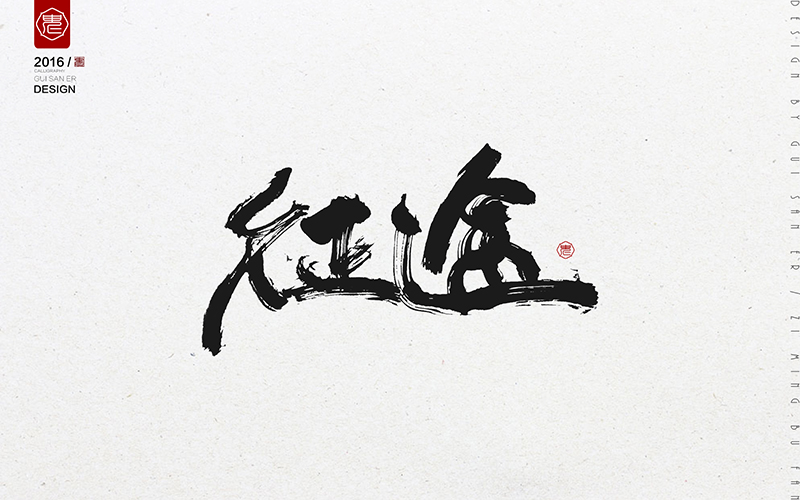 2016 /
CALLIGRAPHY
GUI SAN ER
DESIGN
征途
DESIGN BY GUI SAN ER / ZI MING BU FAN